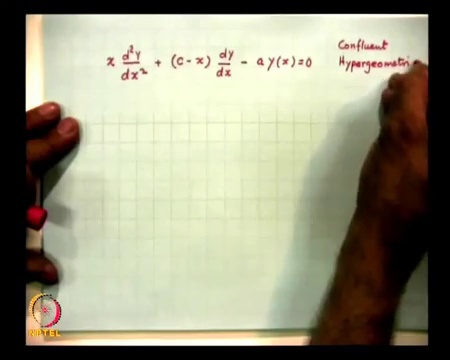 x d²y/dx² + (c - x) dy/dx - a y(x) = 0
Confluent
Hypergeometri
NPTEL